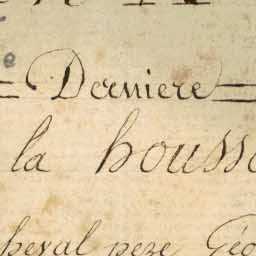 = Derniere =
la houss
heval peze Géo